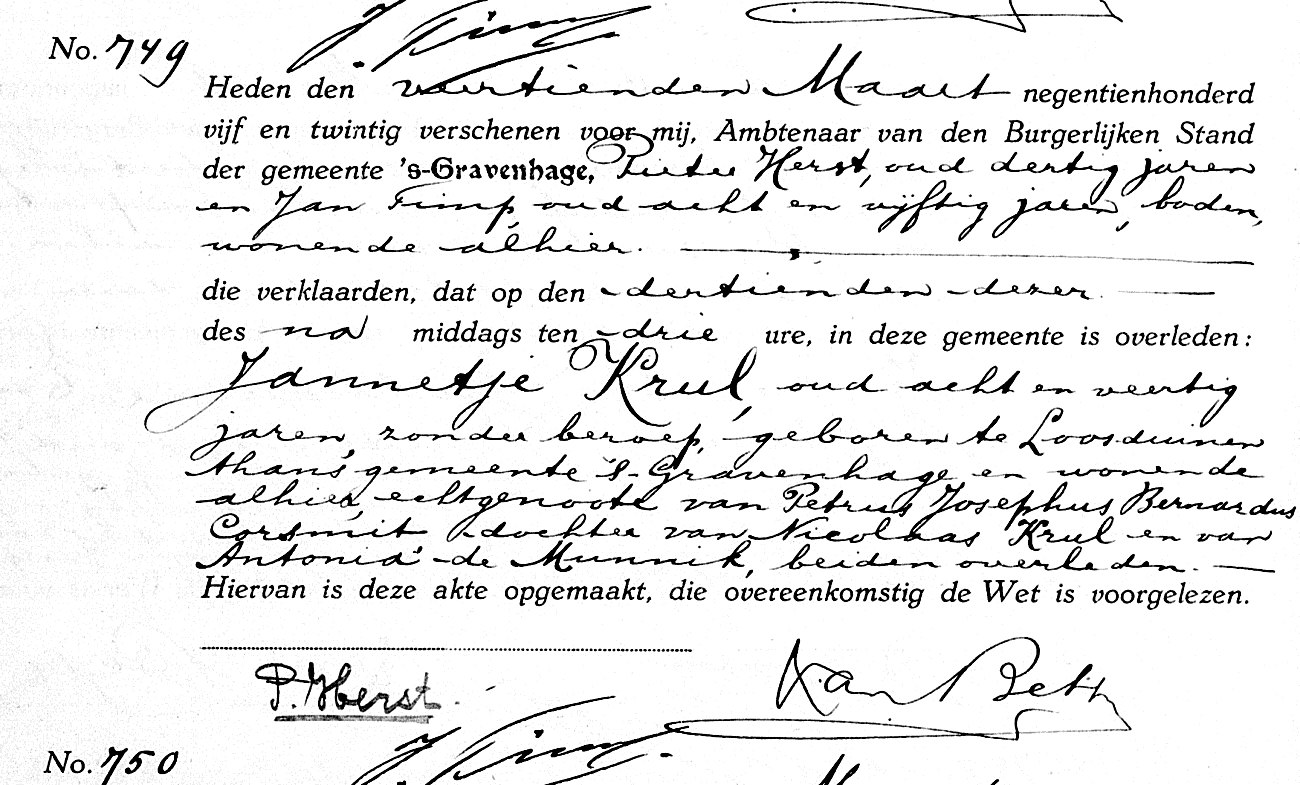 No. 749
Heden den veertienden Maart negentienhonderd
vijf en twintig verschenen voor mij, Ambtenaar van den Burgerlijken Stand
der gemeente 's-Gravenhage, Pieter Herst, oud dertig jaren
en Jan Timp, oud acht en vijftig jaren, boden,
wonende alhier.
die verklaarden, dat op den dertienden dezer
des na middags ten drie ure, in deze gemeente is overleden:
Jannetje Krul, oud acht en veertig
jaren, zonder beroep, geboren te Loosduinen
thans gemeente 's-Gravenhage en wonende
alhier, echtgenoote van Petrus Josephus Bernardus
Corsmit dochter van Nicolaas Krul en van
Antonia de Munnik, beiden overleden.
Hiervan is deze akte opgemaakt, die overeenkomstig de Wet is voorgelezen.
P. Herst.
J. Timp.
No. 750